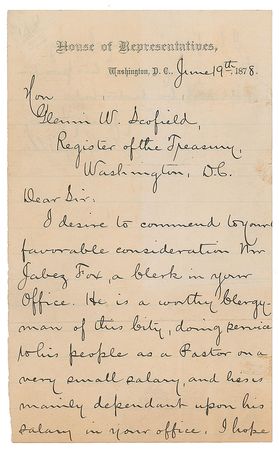 House of Representatives,
Washington, D. C., June 19th, 1878.
Hon
Glenni W. Scofield,
Register of the Treasury,
Washington, D.C.
Dear Sir:
I desire to commend to your
favorable consideration Mr
Jabez Fox, a clerk in your
Office. He is a worthy Clergy-
man of this City, doing service
to his people as a Pastor on a
very small salary, and he is
mainly dependant upon his
salary in your office. I hope